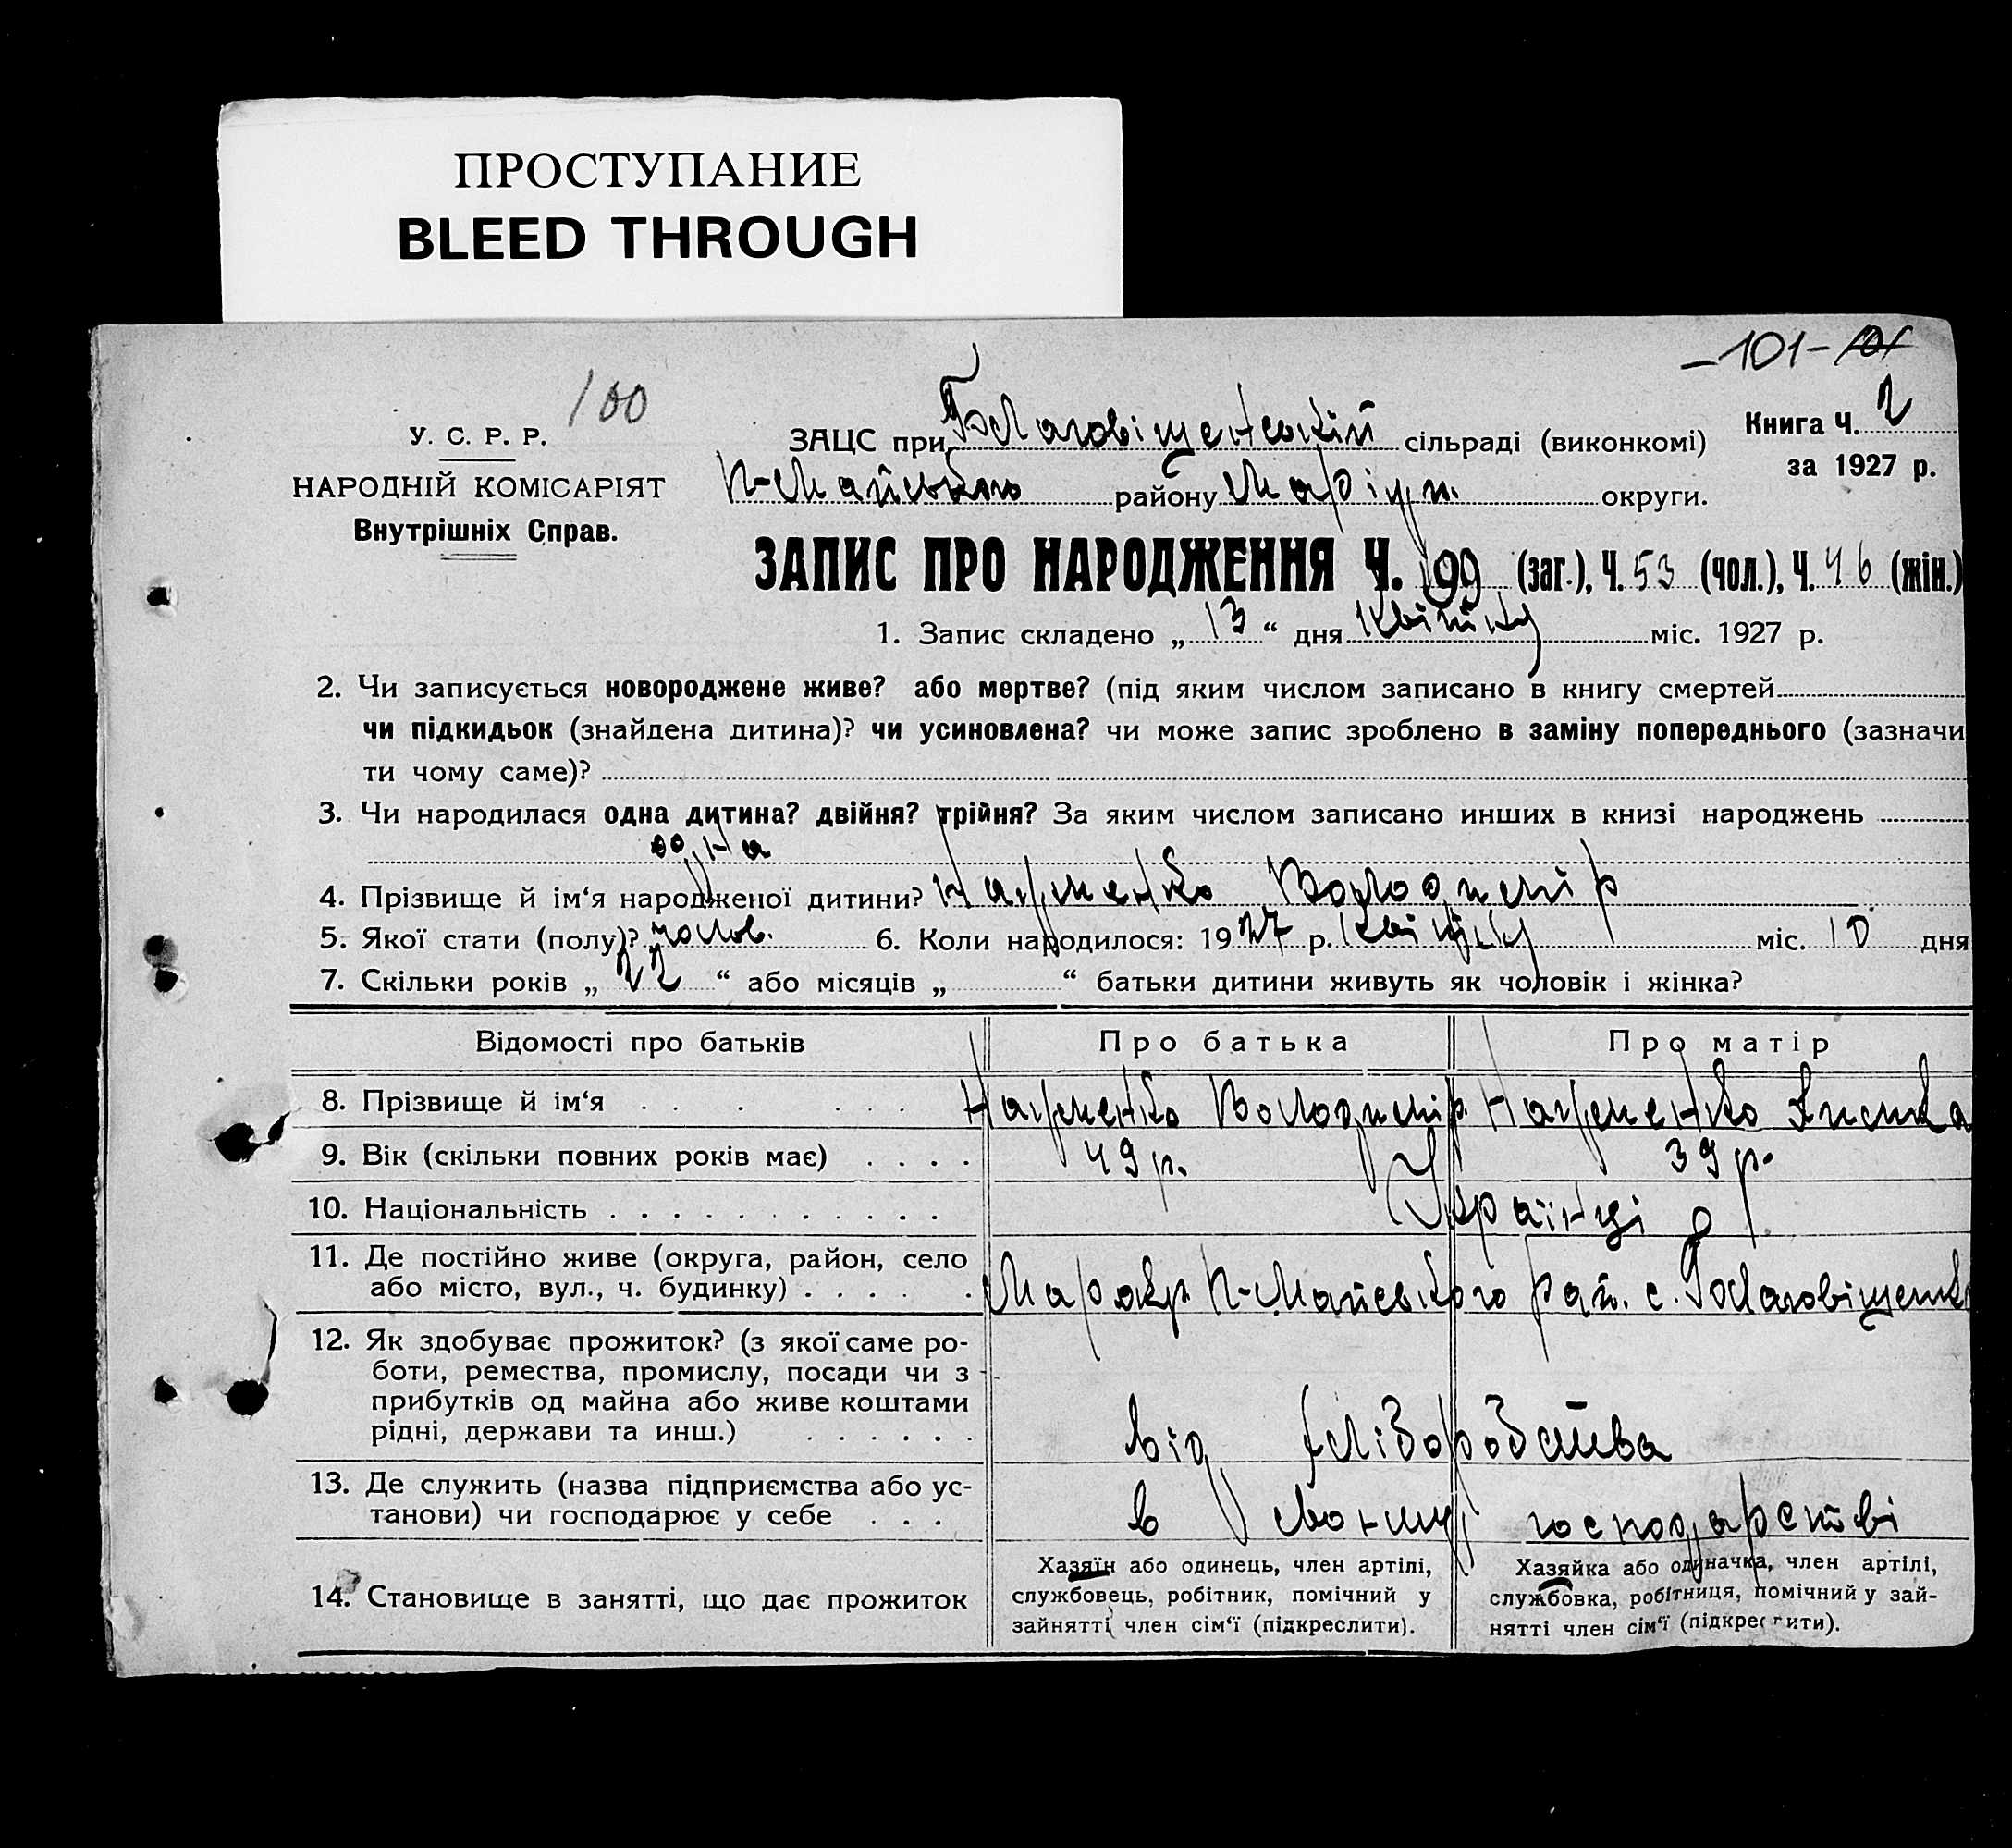 ПРОСТУПАНИЕ
BLEED THROUGH
-101- 101
100
У. С. Р. Р.
НАРОДНІЙ КОМІСАРІЯТ
Внутрішніх Справ.
ЗАЦС при Благовіщенській сільраді (виконкомі)
П-Майського району Маріуп. округи.
Книга Ч. 2
за 1927 р.
ЗАПИС ПРО НАРОДЖЕННЯ Ч. 99 (заг.), Ч. 53 (чол.), Ч. 46 (жін.)
1. Запис складено „ 13 “ дня Квітня міс. 1927 р.
2. Чи записується новороджене живе? або мертве? (під яким числом записано в книгу смертей
чи підкидьок (знайдена дитина)? чи усиновлена? чи може запис зроблено в заміну попереднього (зазначи
ти чому саме)?
3. Чи народилася одна дитина? двійня? трійня? За яким числом записано инших в книзі народжень
одна
4. Прізвище й ім‘я народженої дитини? Володимір
5. Якої стати (полу)? чолов. 6. Коли народилося: 1927 р. Квітня міс. 10 дня
7. Скільки років „ 22 “ або місяців „ “ батьки дитини живуть як чоловік і жінка?
Відомості про батьків Про батька Про матір
8. Прізвище й ім‘я . . . . . . . Володимір
9. Вік (скільки повних років має) . . . . 49 р. 39 р.
10. Національність . . . . . . . . . . . . Українці
11. Де постійно живе (округа, район, село
або місто, вул., ч. будинку) . . . . . Мар окр П-Майського рай. с. Благовіщенка
12. Як здобуває прожиток? (з якої саме ро-
боти, ремества, промислу, посади чи з
прибутків од майна або живе коштами
рідні, держави та инш.) . . . . . . від хліборобства
13. Де служить (назва підприємства або ус-
танови) чи господарює у себе . . . в своєму господарстві
14. Становище в занятті, що дає прожиток
Хазяїн або одинець, член артілі,
службовець, робітник, помічний у
зайнятті член сім‘ї (підкреслити).
Хазяйка або одиначка, член артілі,
службовка, робітниця, помічний у зай-
нятті член сім‘ї (підкреслити).